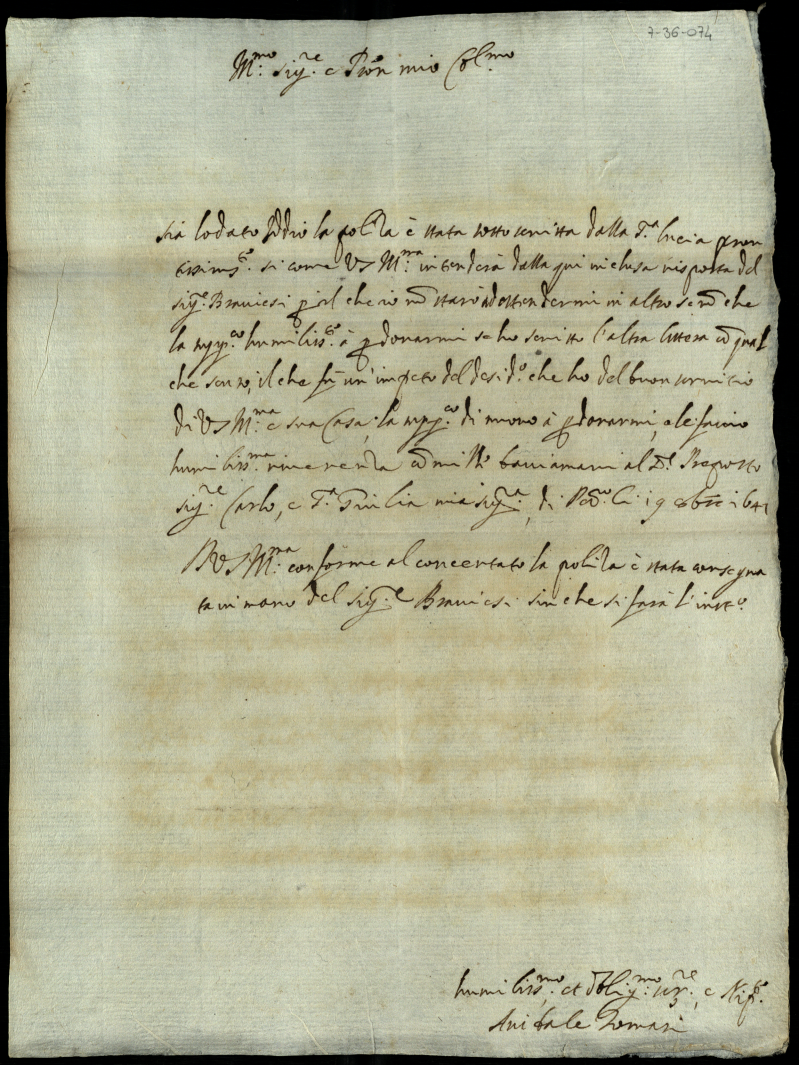 7-36-074
M.mo sig.re e Pron mio Col.mo
sia lodato Iddio la poliza è stata sotto scritta dalla S.a lucia pron
tissim.te si come VS M.ma intenderà dalla qui inclusa risposta del
sig.r Bravicesi p il che io nō starò ad ostendermi in altro se nō che
la supp.co humiliss.te à pdonarmi se ho scritto l'altra littera cō qual
che senso, il che fù un'impeto del desid.o che ho del buon servitio
di VS M.ma e sua Casa, la supp.co di nuovo à pdonarmi, e le faccio
humiliss.ma riverenza cō mille baciamani al S.r Preposto
sig.re Carlo, e S.a Giulia mia sig.ra, di Pad.a li 19 8bre 164
VS M.ma conforme al concertato la poliza è stata consegna
ta in mano del sig.re Bravicesi sin che si farà l'inst.o
humiliss.mo et oblig.mo ser.re, e Nip.te
Anibale Tomasi